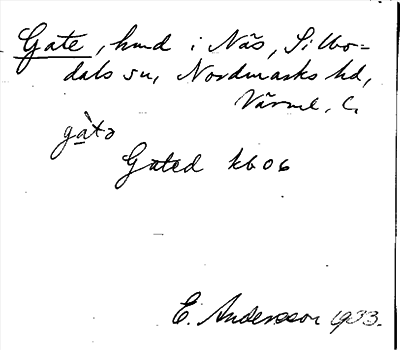 Gate, hmd i Näs, Silbo-
dals sn, Nordmarks hd,
Värml. l.
gàtə
Gated kb 06
E. Andersson 1933.